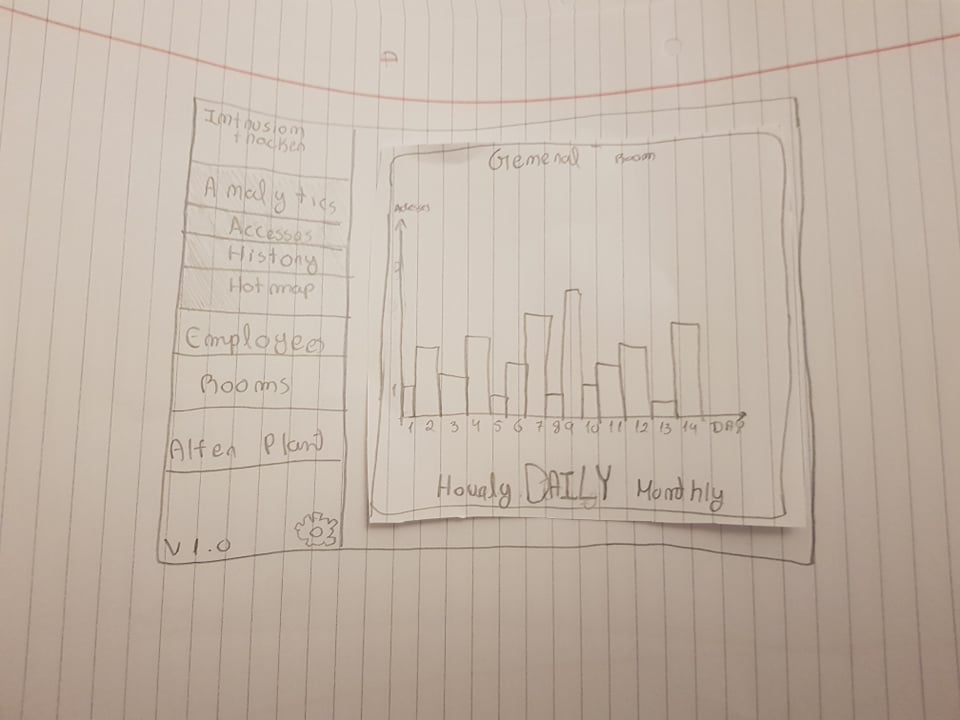 Intrusion
tracker
Analytics
Accesses
History
Hotmap
Employees
Rooms
Alter Plant
V 1.0
General Room
Accesses
2
1
1 2 3 4 5 6 7 8 9 10 11 12 13 14 DAY
Hourly DAILY Monthly